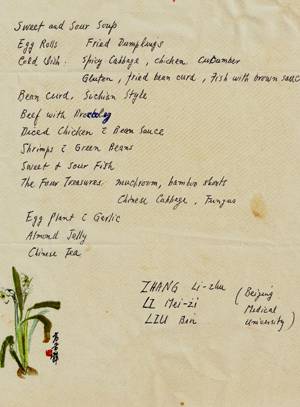 Sweet and Sour Soup
Egg Rolls Fried Dumplings
Cold Dish: Spicy Cabbage, chicken Cucumber
Gluten, fried bean curd, Fish with brown sauce
Bean Curd, Sichian Style
Beef with Broccoley
Diced Chicken & Bean Sauce
Shrimps & Green Beans
Sweet & Sour Fish
The Four Treasures: muchroom, bamboo shoots
Chinese Cabbage, Fungus
Egg Plant & Garlic
Almond Jelly
Chinese Tea
ZHANG Li-zhu
LI Mei-zi
LIU Bin
(Beijing
Medical
University)